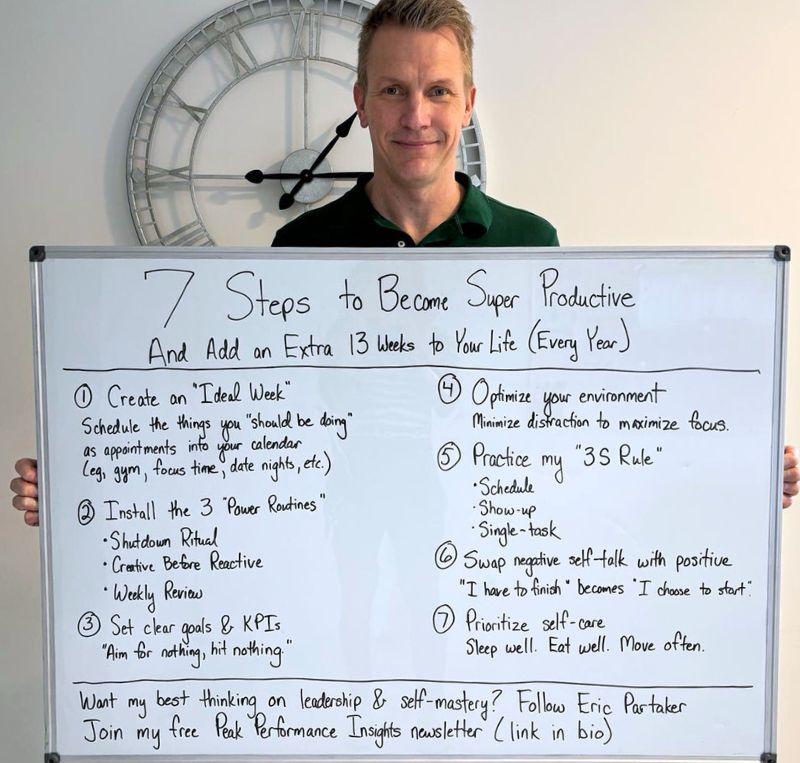 7 Steps to Become Super Productive
And Add an Extra 13 Weeks to Your Life (Every Year)
① Create an "Ideal Week"
Schedule the things you "should be doing"
as appointments into your calendar
(eg, gym, focus time, date nights, etc.)
② Install the 3 "Power Routines"
• Shutdown Ritual
• Creative Before Reactive
• Weekly Review
③ Set clear goals & KPIs
"Aim for nothing, hit nothing."
④ Optimize your environment
Minimize distraction to maximize focus.
⑤ Practice my "3S Rule"
• Schedule
• Show-up
• Single-task
⑥ Swap negative self-talk with positive
"I have to finish" becomes "I choose to start".
⑦ Prioritize self-care
Sleep well. Eat well. Move often.
Want my best thinking on leadership & self-mastery? Follow Eric Partaker
Join my free Peak Performance Insights newsletter (link in bio)